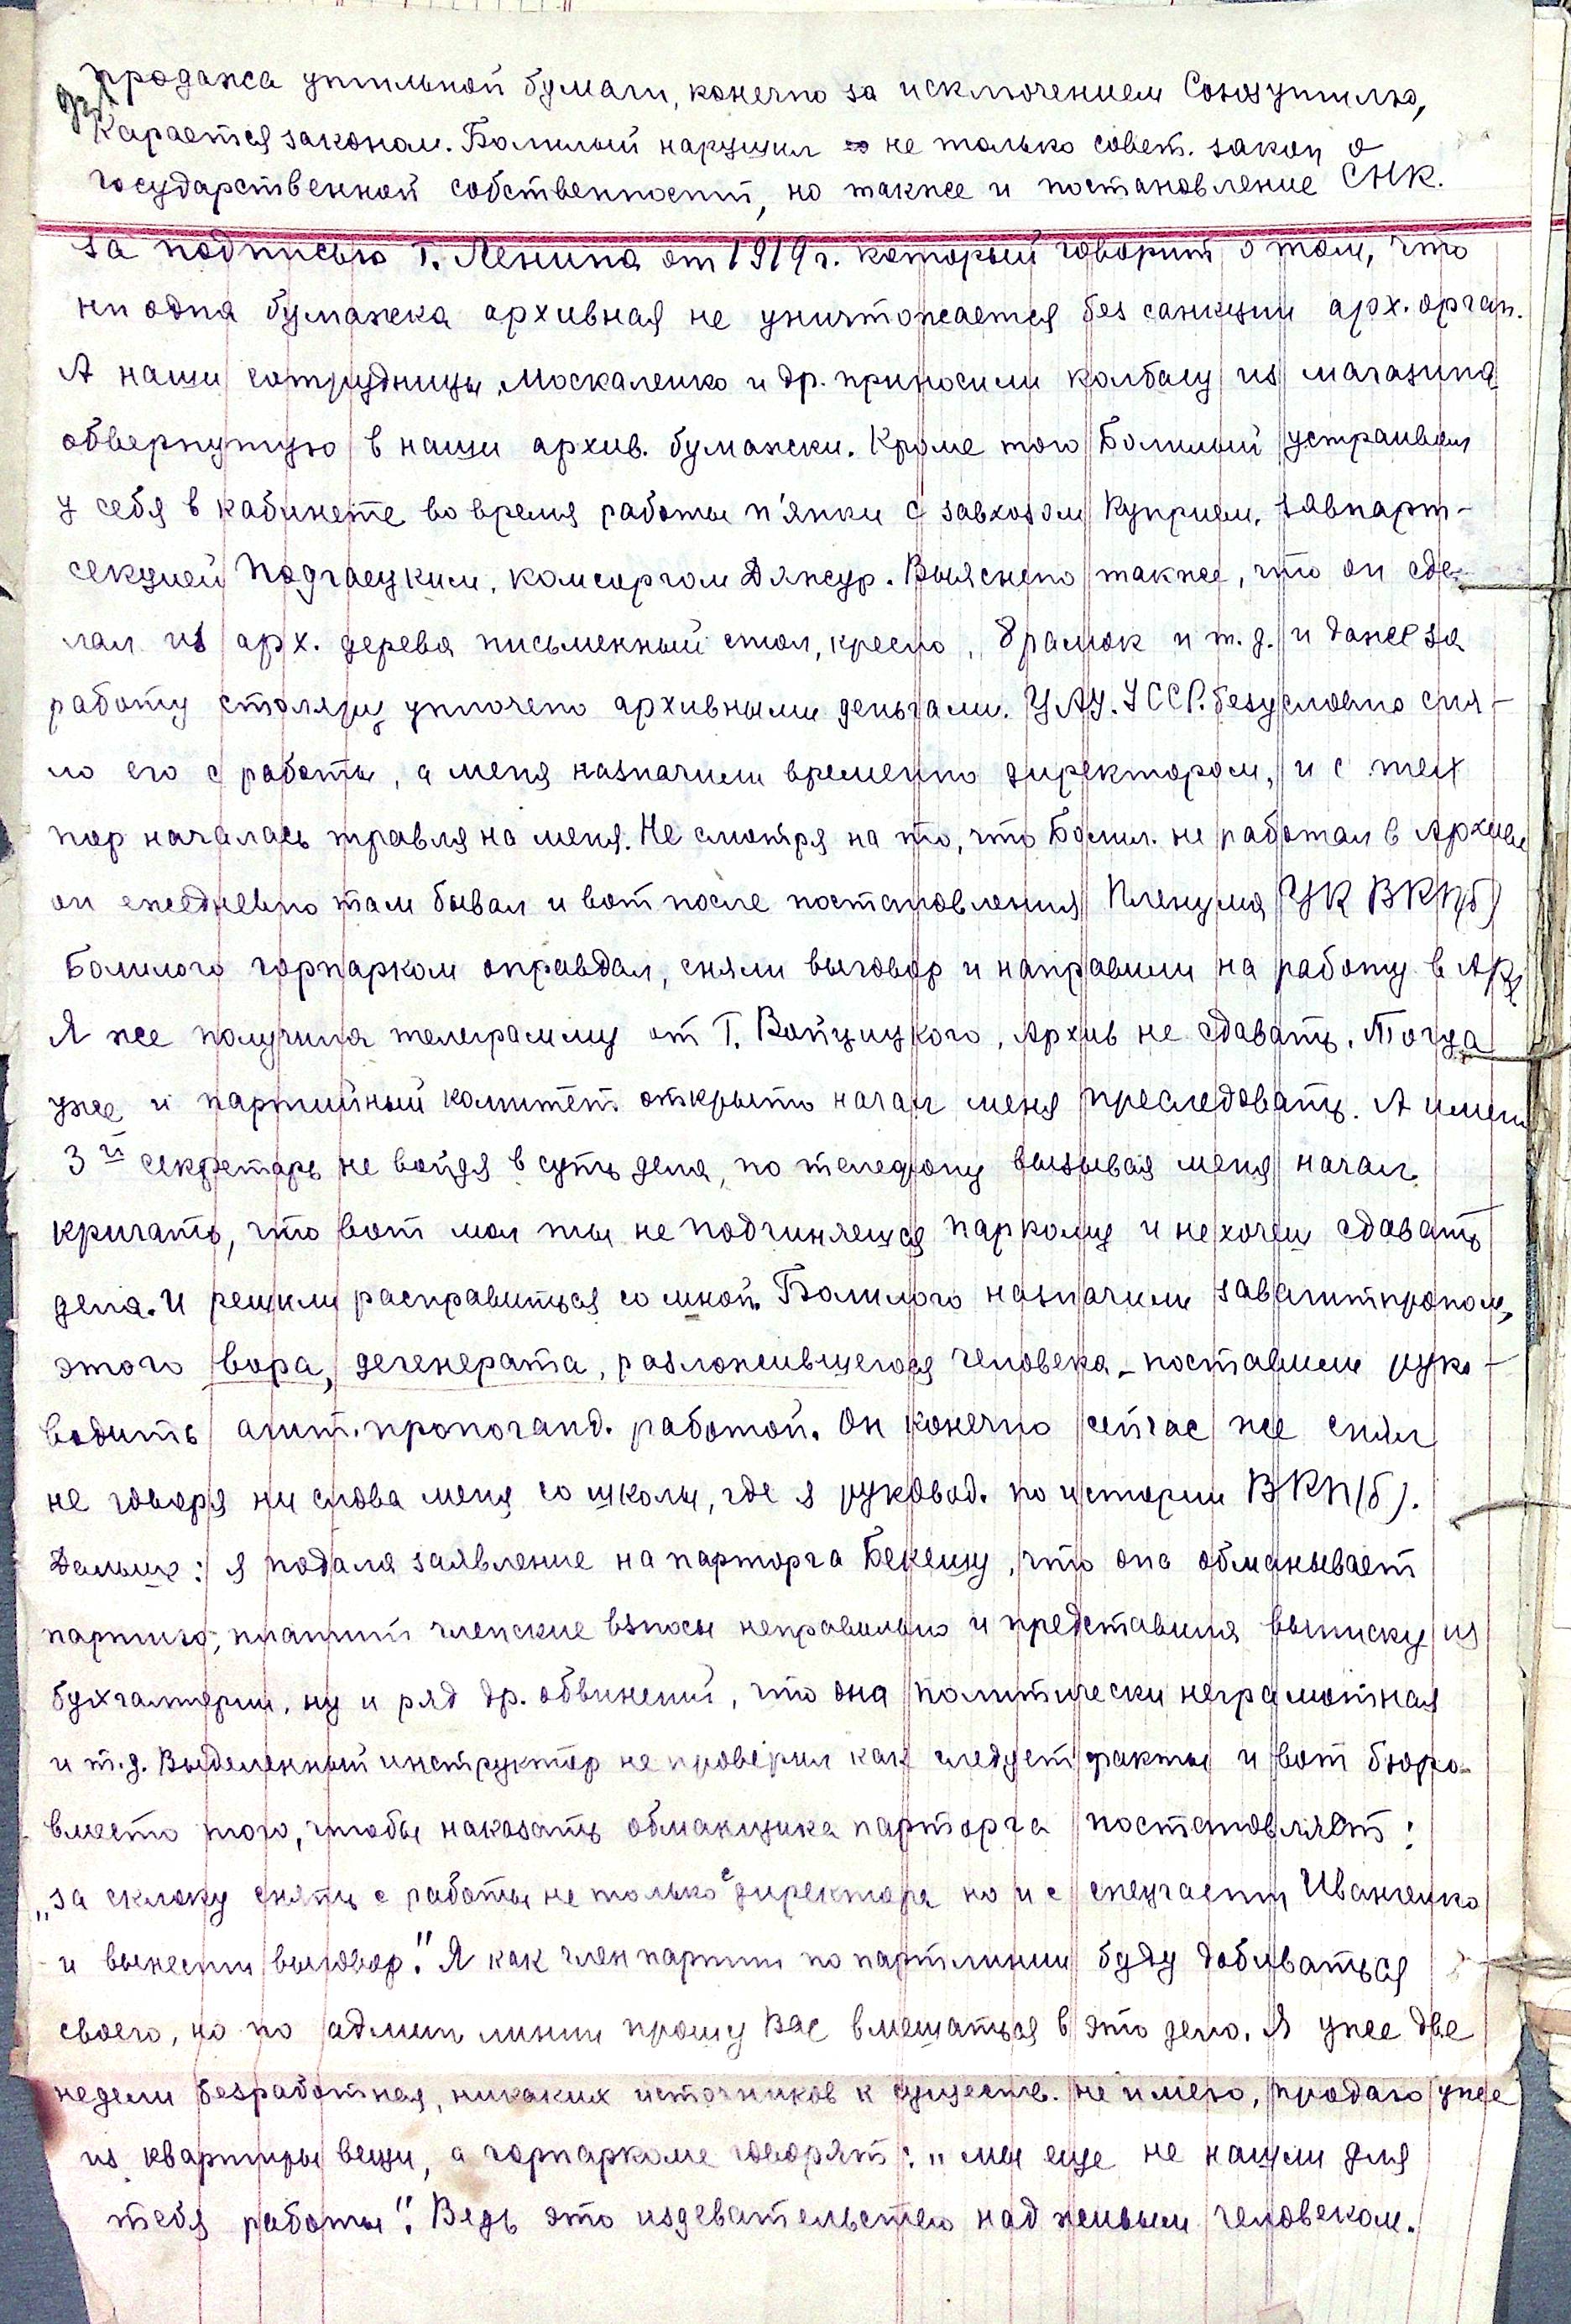 продажа утильной бумаги, конечно за исключением Союзутилю,
карается законом. Болилый нарушил не только совет. закон о
государственной собственности, но также и постановление СНК.
за подписью т. Ленина от 1919 г. который говорит о том, что
ни одна бумажка архивная не уничтожается без санкции арх. орган.
А наши сотрудницы, Москаленко и др. приносили колбасу из магазина
обвернутую в наши архив. бумажки. Кроме того Болилый устраивал
у себя в кабинете во время работы п'янки с завхозом Куприем, завпарт-
секцией Подгаецким, комсоргом Дяжур. Выяснено также, что он сде-
лал из арх. дерева письменный стол, кресло, 8 рамок и т.д. и даже за
работу столяру уплочено архивными деньгами. ЦАУ. УССР. безусловно сня-
ло его с работы, а меня назначили временно директором, и с тех
пор началась травля на меня. Не смотря на то, что Болил. не работал в Архиве
он ежедневно там бывал и вот после постановления Пленума ЦК ВКП(б)
Болилого горпарком оправдал, сняли выговор и направили на работу в Арх.
Я же получила телеграмму от Т. Войцицкого, Архив не сдавать. Тогда
уже и партийный комитет открыто начал меня преследовать. А именно
3й секретарь не войдя в суть дела, по телефону вызывая меня начал
кричать, что вот мол ты не подчиняешся паркому и не хочеш сдавать
дела. И решили расправиться со мной. Болилого назначили завагитпропом,
этого вора, дегенерата, разложившегося человека - поставили руко-
водить агит. пропоганд. работой. Он конечно сейчас же снял
не говоря ни слова меня со школы, где я руковод. по истории ВКП(б).
Дальше: я подала заявление на парторга Бекешу, что она обманывает
партию, платит членские взносы неправильно и представила выписку из
бухгалтерии, ну и ряд др. обвинений, что она политически неграмотная
и т.д. Выделенный инструктор не проверил как следует факты и вот бюро
вместо того, чтобы наказать обманщика парторга постановляет:
„за склоку снять с работы не только с директора но и с спецчасти Иванченко
и вынести выговор." Я как член партии по партлинии буду добиваться
своего, но по админ линии прошу Вас вмешаться в это дело. Я уже две
недели безработная, никаких источников к существ. не имею, продаю уже
из квартиры вещи, а горпаркоме говорят: „мы еще не нашли для
тебя работы". Ведь это издевательство над живым человеком.